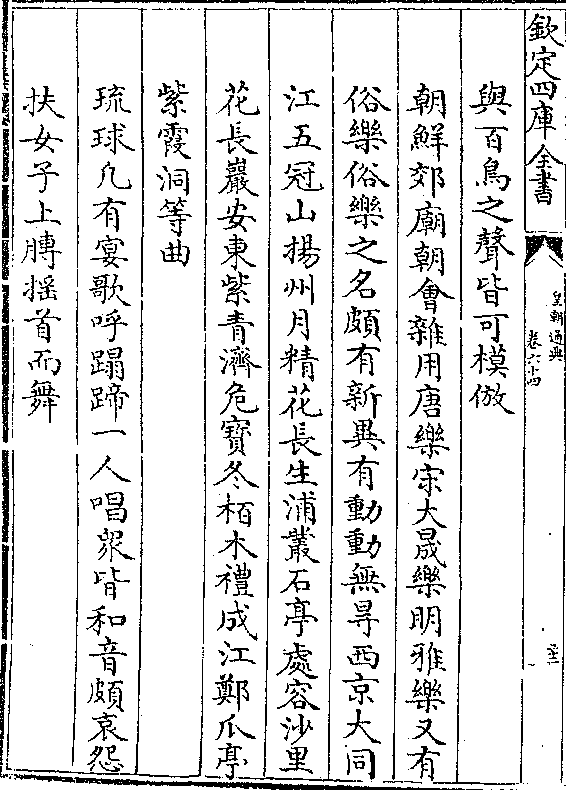 欽定四庫全書
皇朝通典
卷六十四
與百鳥之聲皆可模倣
朝鮮郊廟朝會雜用唐樂宋大晟樂明雅樂又有
俗樂俗樂之名頗有新異有動動無㝵西京大同
江五冠山揚州月精花長生浦叢石亭處容沙里
花長巖安東紫青濟危寶冬栢木禮成江鄭瓜亭
紫霞洞等曲
琉球凡有宴歌呼蹋蹄一人唱衆皆和音頗哀怨
扶女子上膊摇首而舞